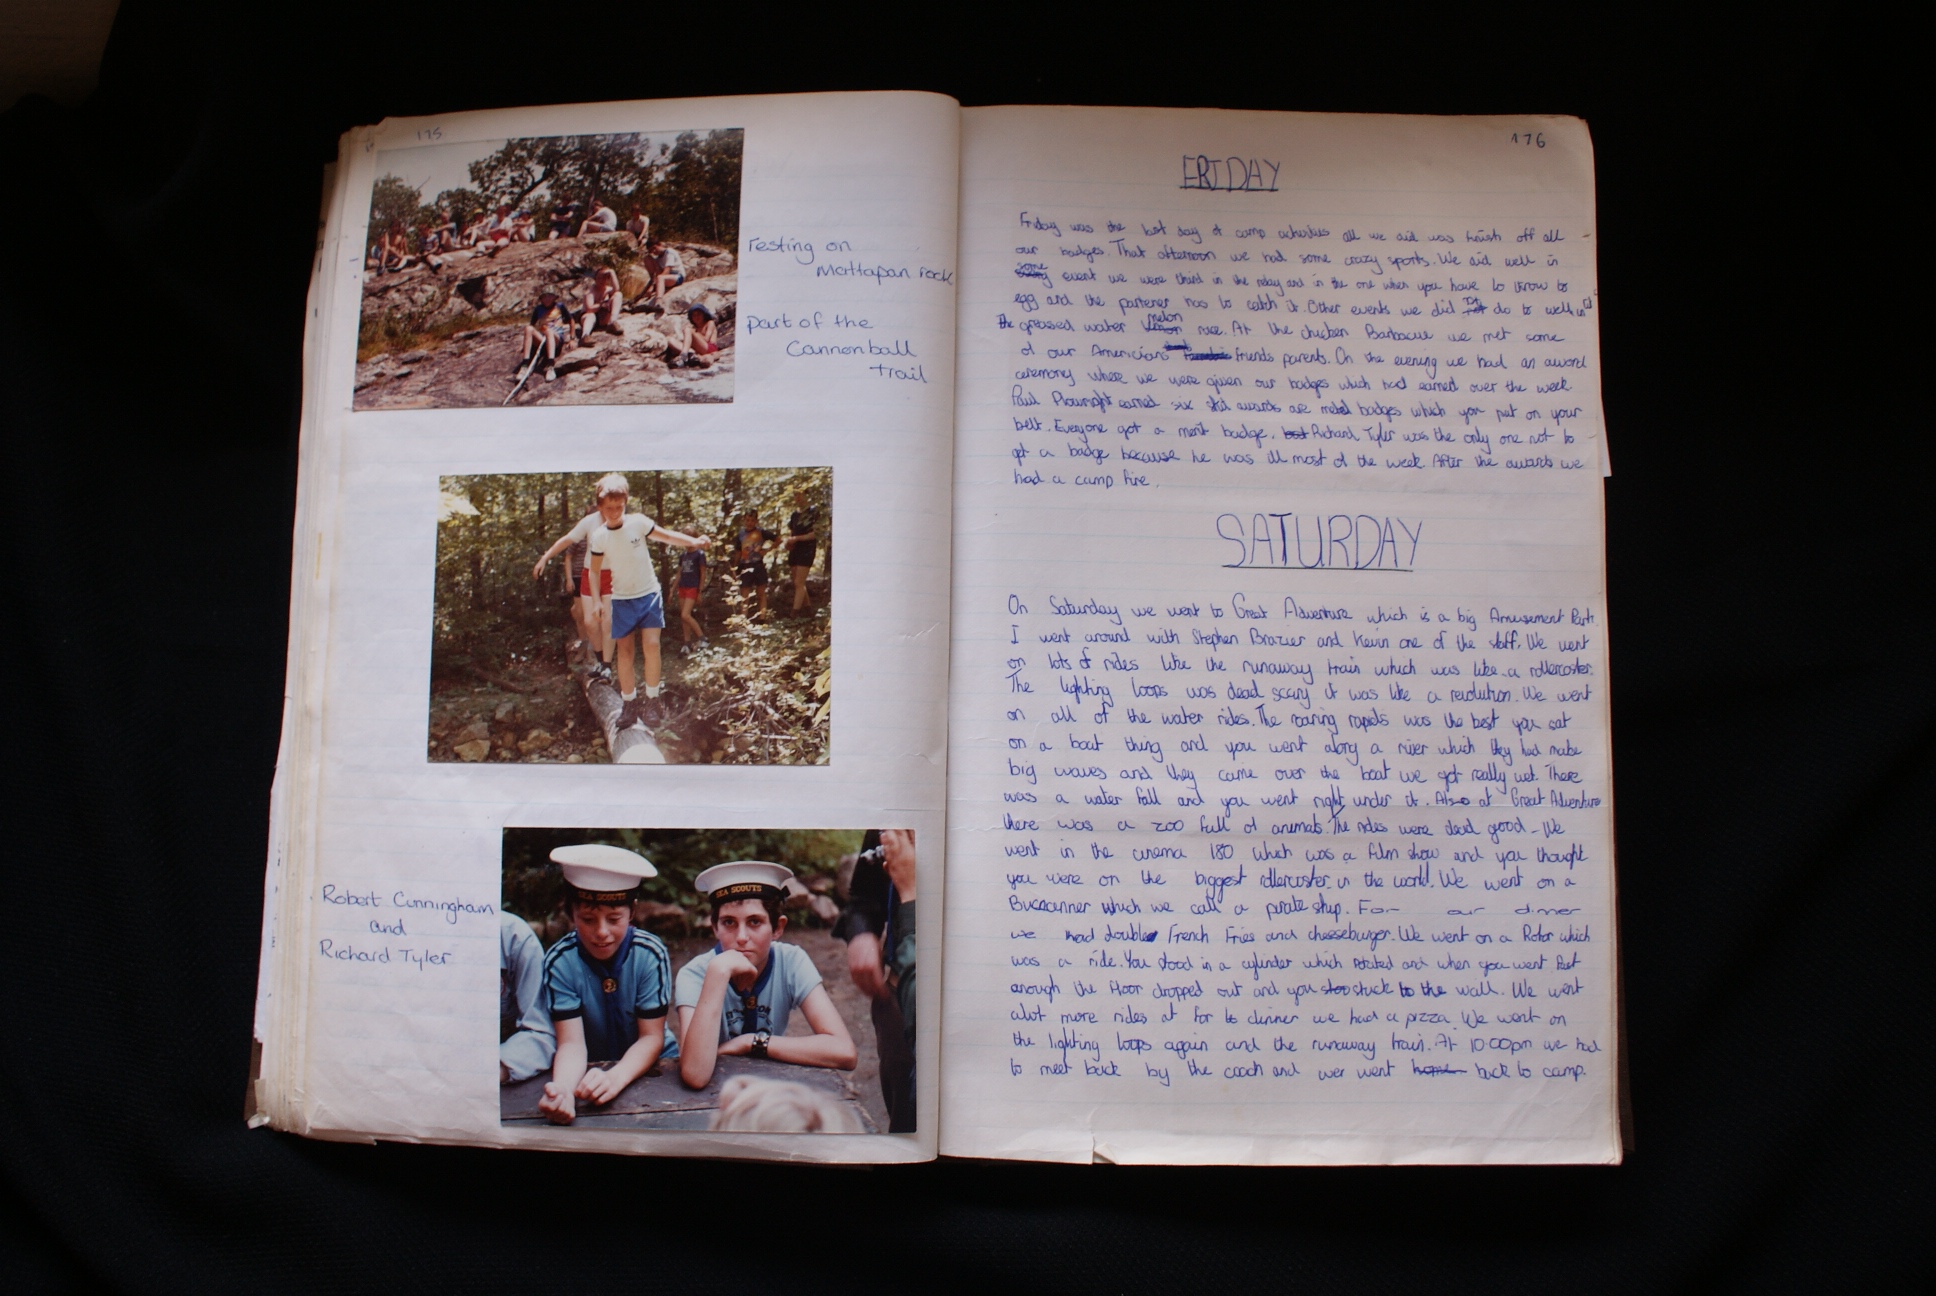 175
resting on
Mattapan rock
part of the
Cannonball
trail
SEA SCOUTS
SEA SCOUTS
Robert Cunningham
and
Richard Tyler
176
FRIDAY
Friday was the last day of camp activities all we did was finish off all
our badges. That afternoon we had some crazy sports. We did well in
some event we were third in the relay and in the one when you have to throw to
egg and the partener has to catch it. Other events we did not do to well in
The greased water melon race. At the chicken Barbacue we met some
of our Americians friends parents. On the evening we had an award
ceremony where we were given our badges which had earned over the week
Paul Plowright earned six skil awards are metal badges which you put on your
belt. Everyone got a merit badge. Richard Tyler was the only one not to
get a badge because he was ill most of the week. After the awards we
had a camp fire.
SATURDAY
On Saturday we went to Great Adventure which is a big Amusement Park.
I went around with Stephen Brazier and Kevin one of the staff. We went
on lots of rides like the runaway train which was like a rollercoster.
The lighting loops was dead scary it was like a revolution. We went
on all of the water rides. The roaring rapids was the best you sat
on a boat thing and you went along a river which they had make
big waves and they came over the boat we got really wet. There
was a water fall and you went right under it. Also at Great Adventure
there was a zoo full of animals. The rides were dead good - We
went in the cinema 180 which was a film show and you thought
you were on the biggest rollercoster in the world. We went on a
Buccanner which we call a pirate ship. For our dinner
we had double French Fries and cheeseburger. We went on a Rotor which
was a ride. You stood in a cylinder which rotated and when you went fast
enough the floor dropped out and you stuck to the wall. We went
alot more rides at for to dinner we had a pizza. We went on
the lighting loops again and the runaway train. At 10.00pm we had
to meet back by the coach and wer went back to camp.